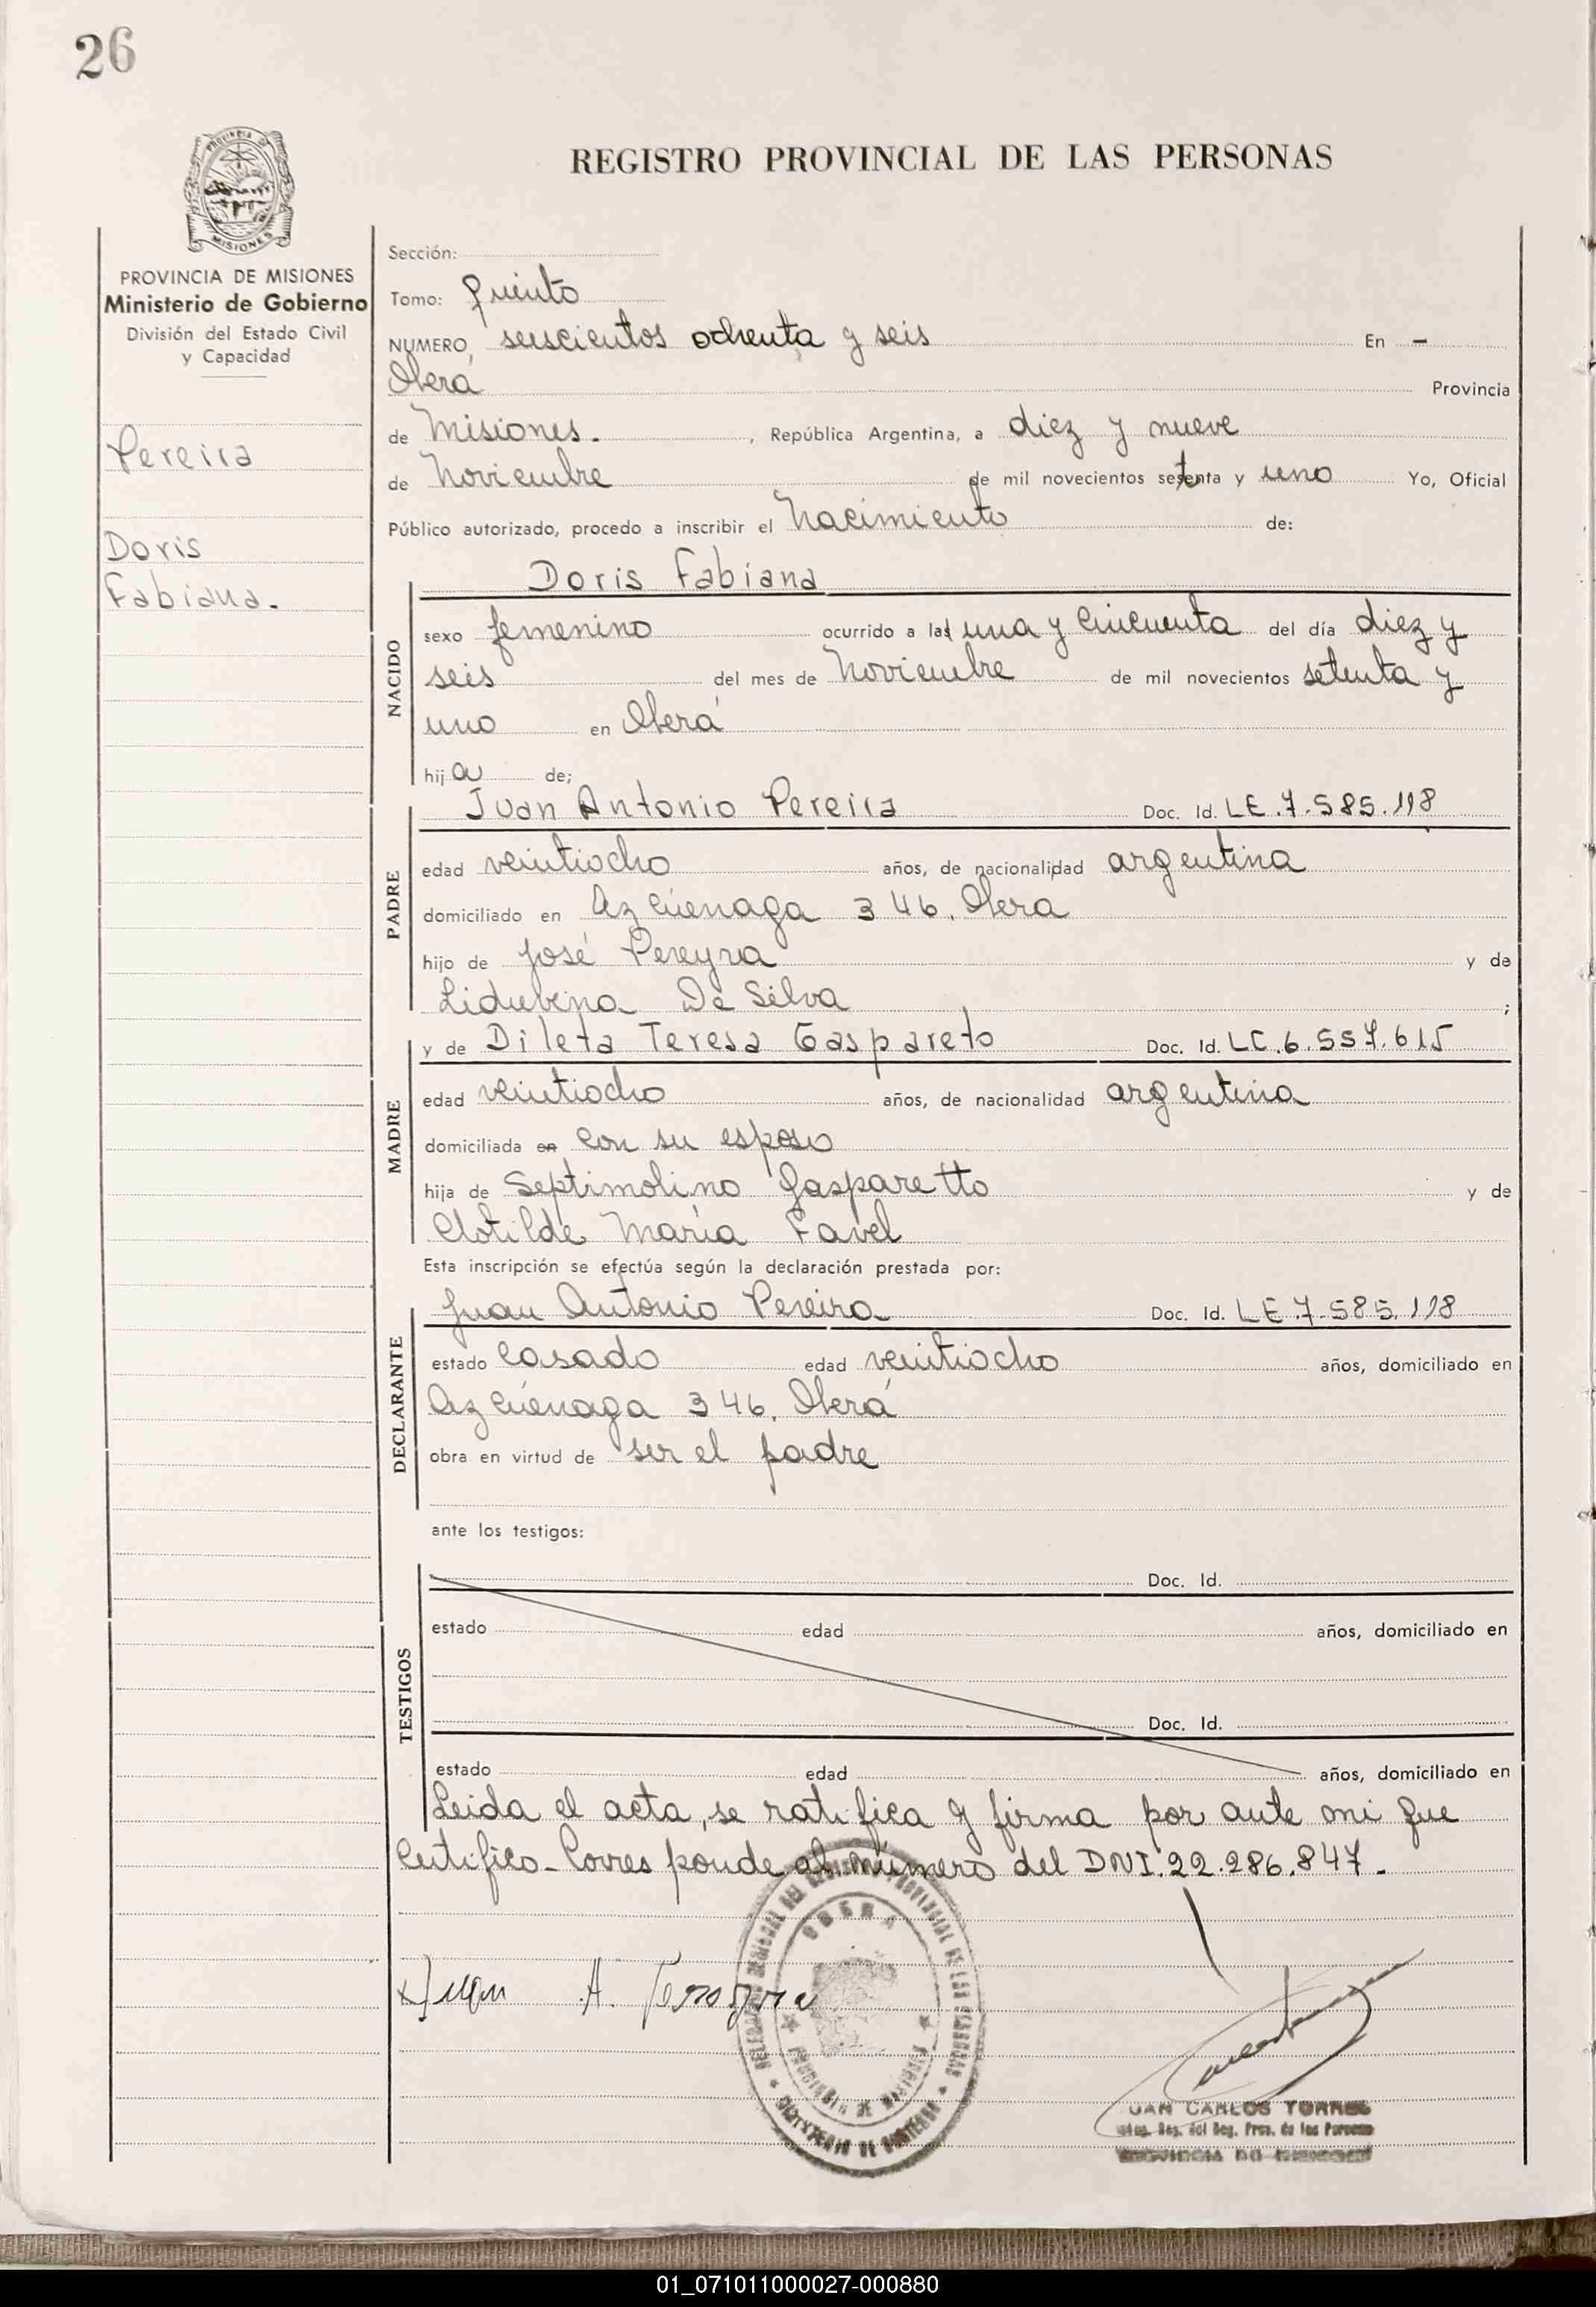 26
REGISTRO PROVINCIAL DE LAS PERSONAS
PROVINCIA DE MISIONES
Ministerio de Gobierno
División del Estado Civil
y Capacidad
Pereira
Doris
Fabiana.
Sección:
Tomo: quinto
NUMERO, seiscientos ochenta y seis En -
Oberá Provincia
de Misiones. , República Argentina, a diez y nueve
de Noviembre de mil novecientos setenta y uno Yo, Oficial
Público autorizado, procedo a inscribir el Nacimiento de:
Doris Fabiana
NACIDO
sexo femenino ocurrido a las una y cincuenta del día diez y
seis del mes de Noviembre de mil novecientos setenta y
uno en Oberá
hija de;
PADRE
Juan Antonio Pereira Doc. Id. LE.7.585.118
edad veintiocho años, de nacionalidad argentina
domiciliado en Azcuénaga 346. Oberá
hijo de José Pereyra y de
Liduvina De Silva ;
MADRE
y de Dileta Teresa Gaspareto Doc. Id. LC.6.557.615
edad veintiocho años, de nacionalidad argentina
domiciliada en con su esposo
hija de Septimolino Gasparetto y de
Clotilde María Favel
Esta inscripción se efectúa según la declaración prestada por:
DECLARANTE
Juan Antonio Pereira Doc. Id. LE.7.585.118
estado Casado edad veintiocho años, domiciliado en
Azcuénaga 346. Oberá
obra en virtud de ser el padre
ante los testigos:
TESTIGOS
Doc. Id.
estado edad años, domiciliado en
Doc. Id.
estado edad años, domiciliado en
Leida el acta, se ratifica y firma por ante mi que
Certifico_ Corresponde al número del DNI.22.286.847.
Juan A. Pereyra
OBERA
PROVINCIA DE MISIONES
MINISTERIO DE GOBIERNO
JUAN CARLOS TORRES
Reg. Prov. de las Personas
PROVINCIA DE MISIONES
01_071011000027-000880